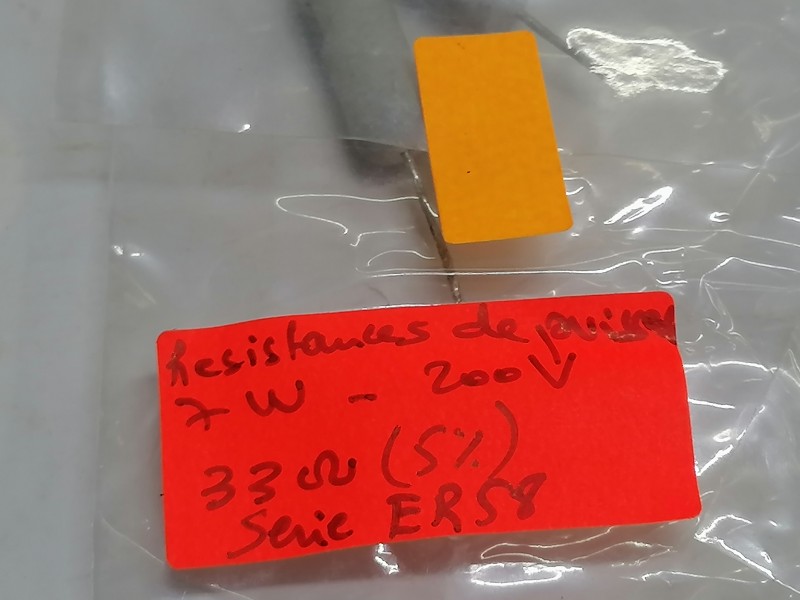 Resistances de puissa
7 W - 200V
33 Ω (5%)
Serie ER58